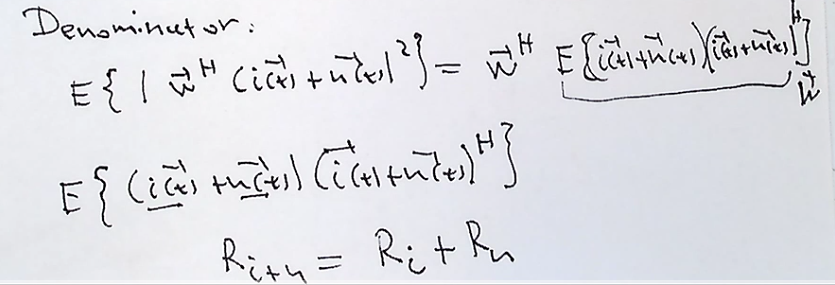 Denominator:
E{ | w⃗^H (i⃗(t) + n⃗(t)|²} = w⃗^H E{(i⃗(t) + n⃗(t))(i⃗(t) + n⃗(t))^H} w⃗
E{ (i⃗(t) + n⃗(t)) (i⃗(t) + n⃗(t))^H }
R_{i+n} = R_i + R_n